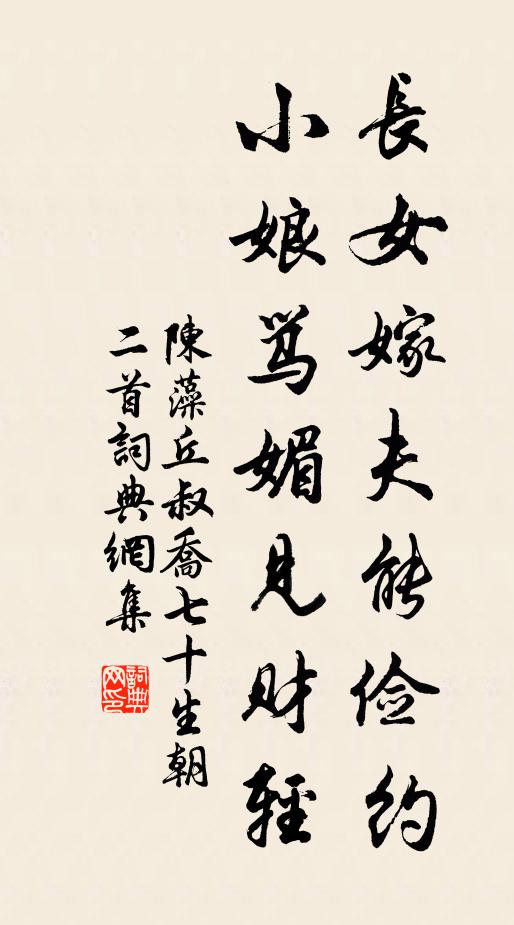 長女嫁夫能俭约
小娘骂媚見财輕
陳藻丘叔喬七十生朝
二首詞典網集
詞典網印